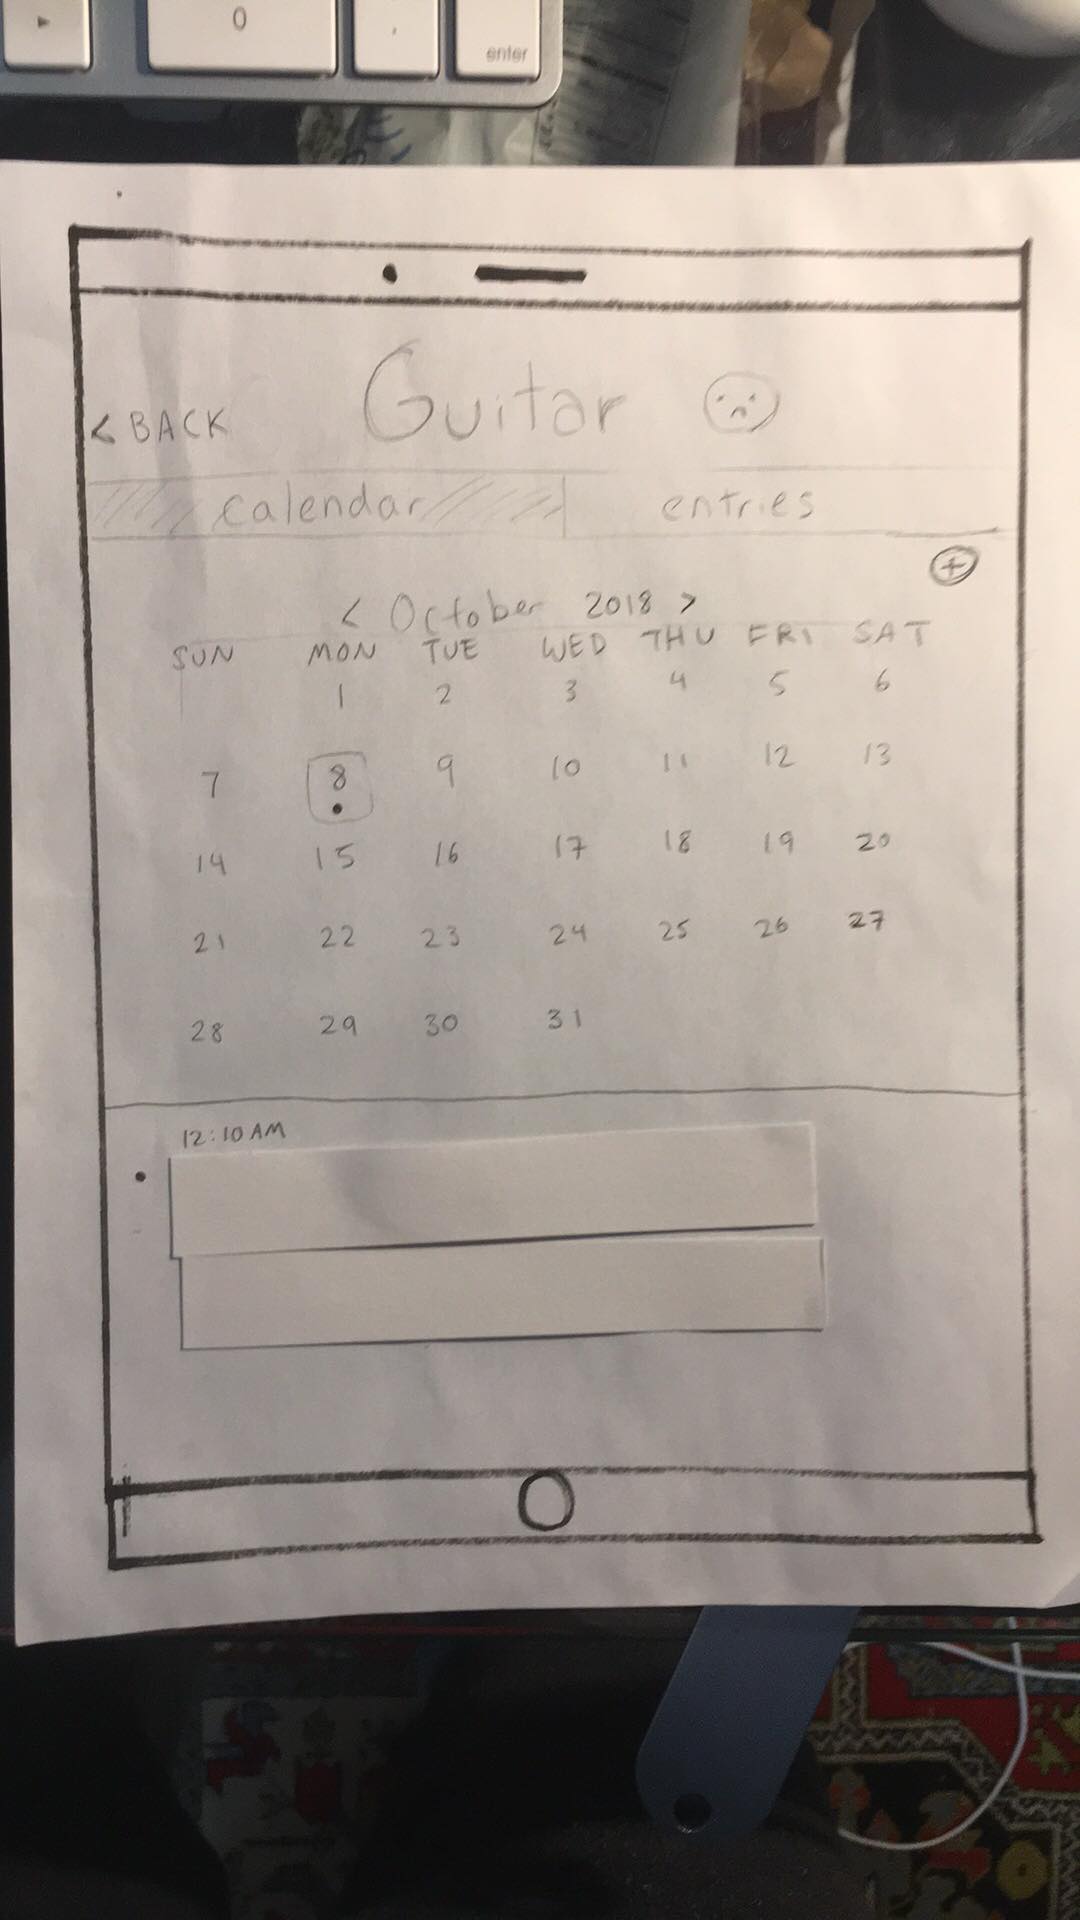 0
,
enter
Guitar
< BACK
calendar entries
+
< October 2018 >
SUN MON TUE WED THU FRI SAT
1 2 3 4 5 6
7 8 9 10 11 12 13
14 15 16 17 18 19 20
21 22 23 24 25 26 27
28 29 30 31
12:10 AM